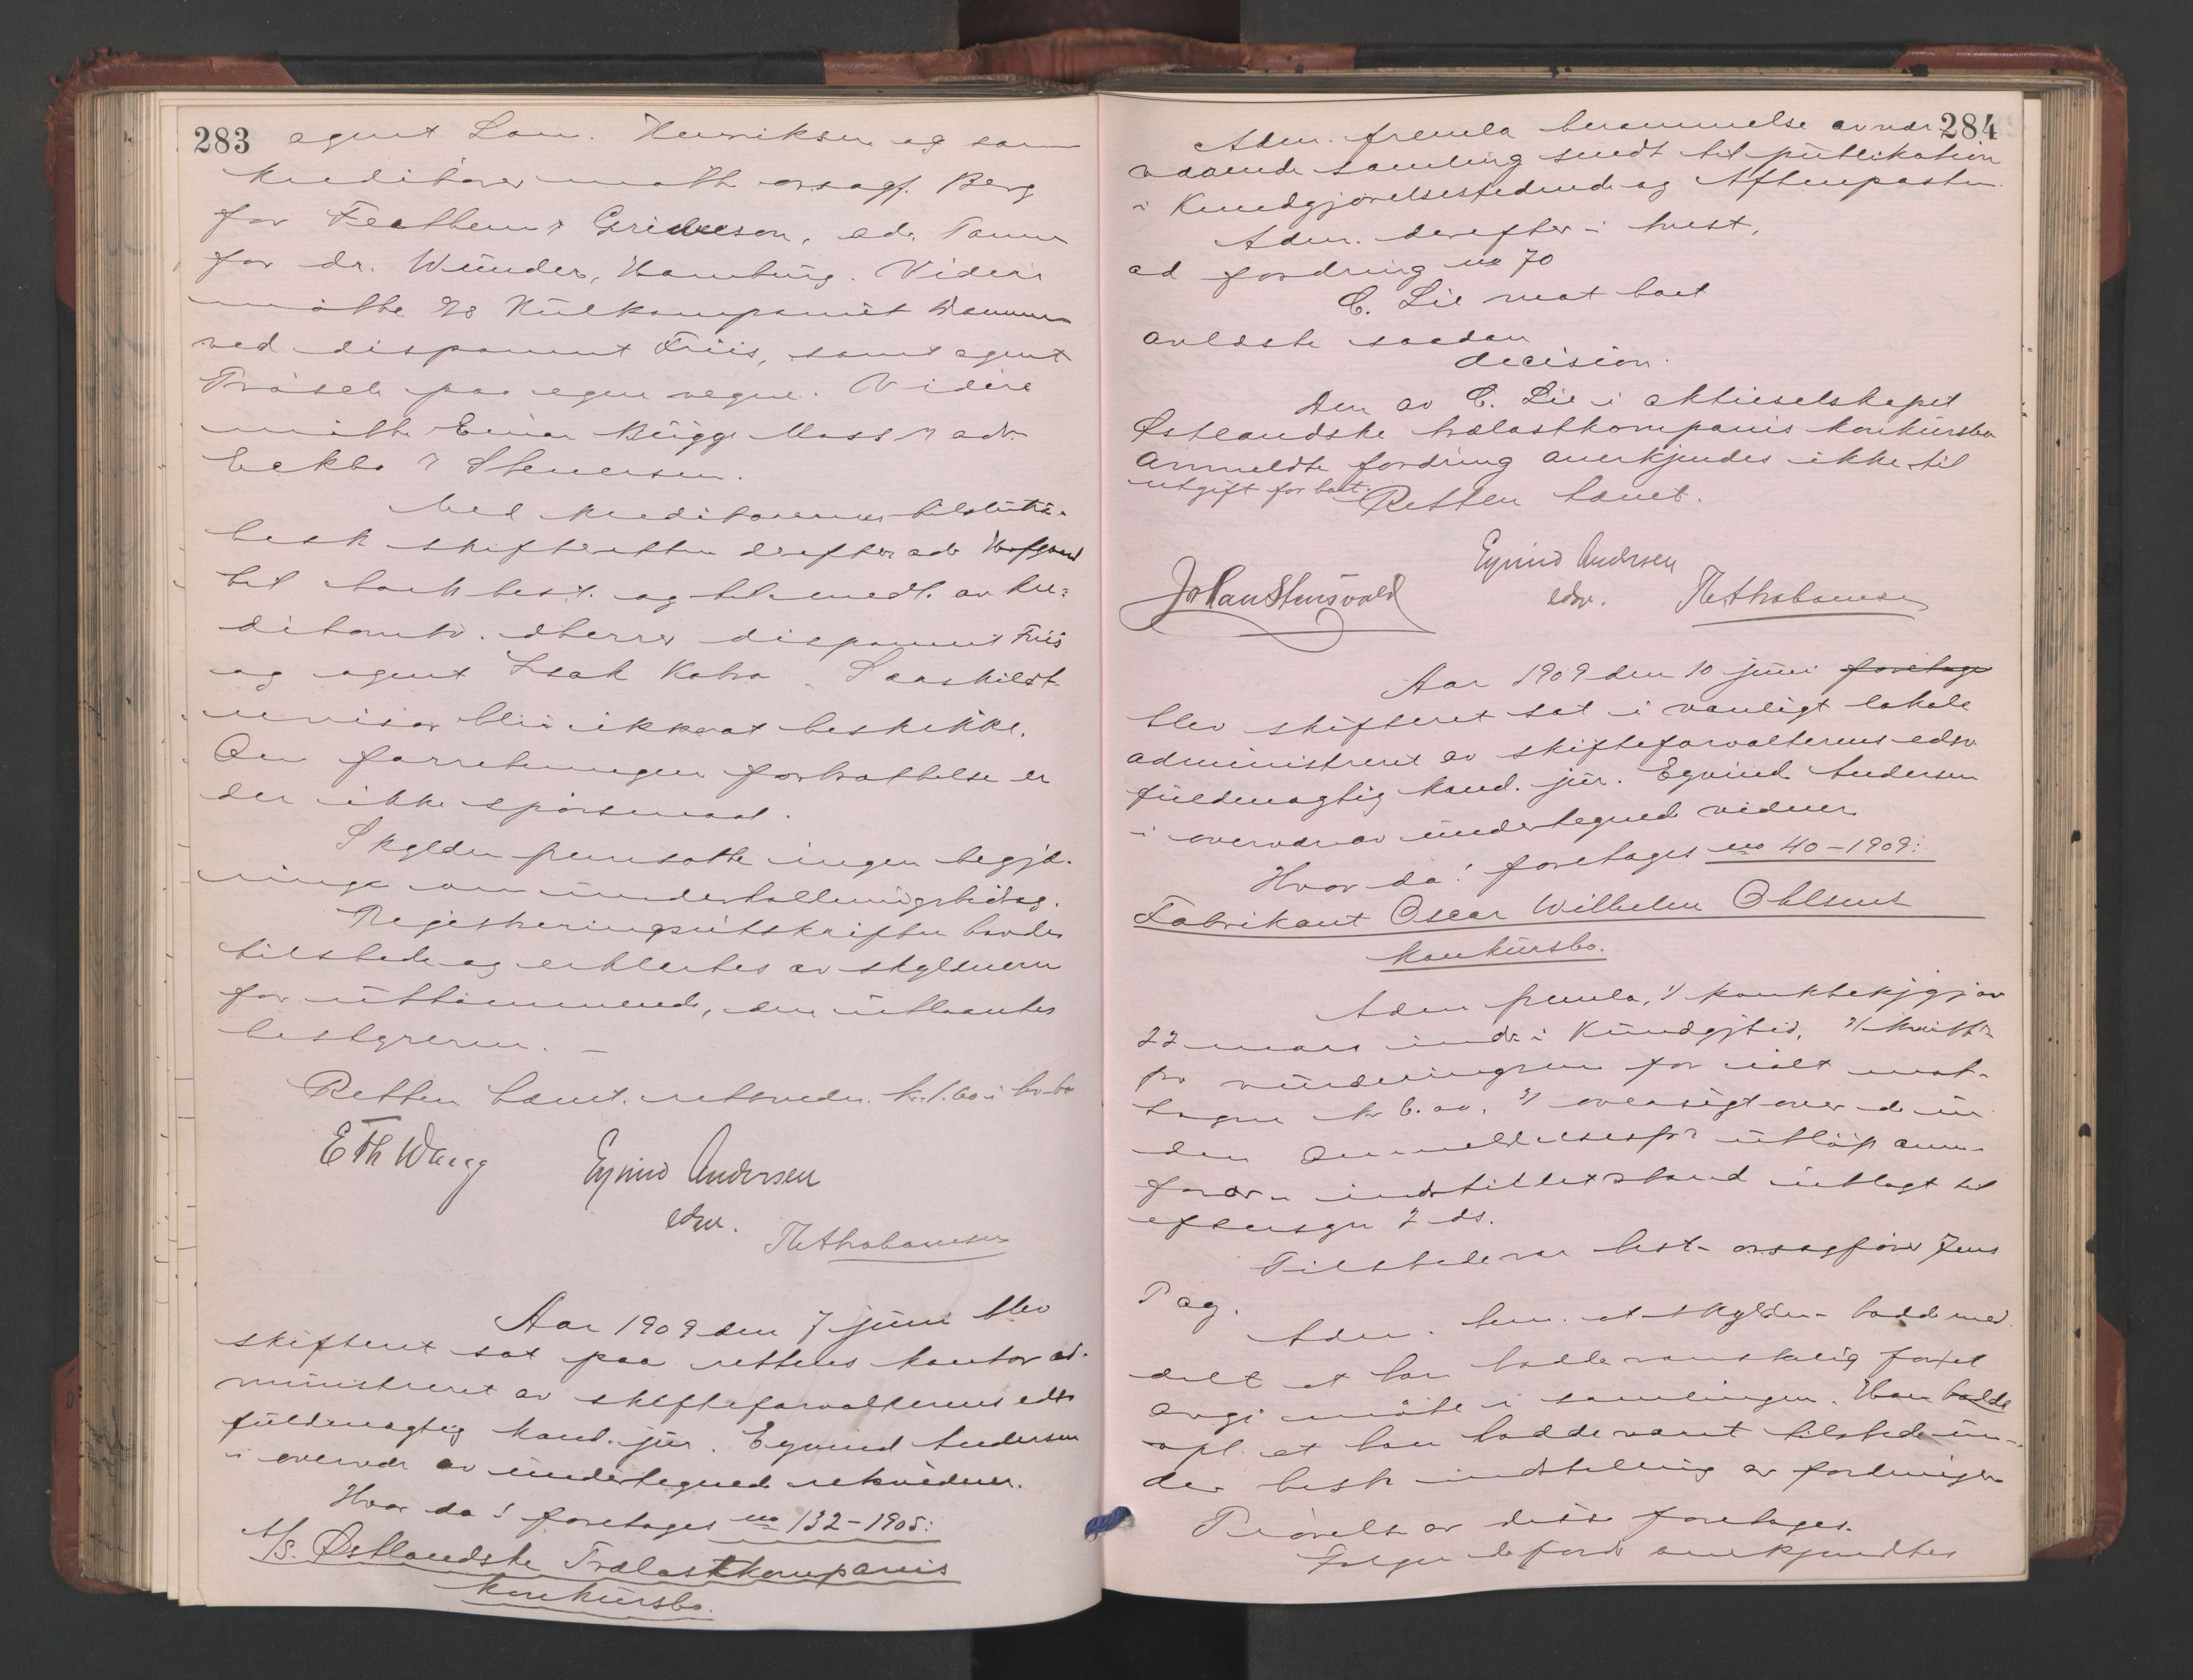 283
agent Lau. Henriksen og som
kreditorer møtte orsagf. Berg
for Feathern & , adv. Tamm
for dr. Wünder, Hamburg. Videre
møtte A/S Kulkompaniet Dammen
ved disponent Friis, samt agent
Träsch paa egne vegne. Videre
møtte Einar Bügge Mass & adv.
Eckbo & Stenersen.
Med kreditorernes tilslutn.
besk skifteretten derefter adv
til boets best. og til medl. av kre-
ditorutv. dherrer disponent Friis
og agent Isak Kahn. Saaskildt
revisor blir ikke at beskikke.
Om forretningens fortsættelse er
der ikke spörsmaal.
Skylden fremsatte ingen begjæ-
ringe om underholdningsbidrag.
Registreringsutskriften havdes
tilstede og erklertes av skyldneren
for uttömmende, den utlaantes
bestyreren. —
Retten hævet. retsvidn. kr. 1.60 i bv-bo
E Th Wang
Eyvind Andersen
edsv.
Th Abrahamsen
Aar 1909 den 7 juni blev
skifteret sat paa rettens kontor ad-
ministreret av skifteforvalterens edsv
fuldmægtig kand. jur. Eyvind Andersen
i overvær av undertegnede retsvidner.
Hvor da! foretages no 132-1905:
A/S. Østlandske Trælastkompanis
konkursbo.
284
Adm. fremla berammelse av nær
værende samling sendt til publikation
i Kundgjørelsestidende og Aftenposten.
Adm. derefter i hvest,
ad fordring no 70
C. Lie mot boet
avldste saadan
decision.
Den av C. Lie i aktieselskapet
Østlandske trælastkompanis konkursbo
anmeldte fordring anerkjendes ikke til
utgift for boet. Retten hævet.
Eyvind Andersen
Johan Stensvold edsv. Th Abrahamsen
Aar 1909 den 10 juni foretage
blev skifteret sat i vanligt lokale
administrert av skifteforvalterens edsv.
fuldmægtig kand. jur. Eyvind Andersen
i overvær av undertegnede vidner.
Hvor da! foretages no 40-1909:
Fabrikant Oscar Wilhelm Ohlsens
konkursbo.
Adm fremla, 1/ konkbekjgjør
22 mars indr i Kundgjtid, 2/ kvitt
fra vurderingsm for mott
kr 6.00, 3/ oversigt over de in
den anmeldelsesfr utløp anm.
fordr indstillet stand utlagt til
eftersyn 2 ds.
Tilstede var best. orsagfører Jens
Pag.
Adm. bem. at skylden hadde med.
delt at han hadde vanskelig for at
avgi møte i samlingen. Han hadde
opl. at han hadde været tilstede un-
der best indstilling av fordringer
Prövelse av disse foretages.
Følgende fordr anerkjendtes